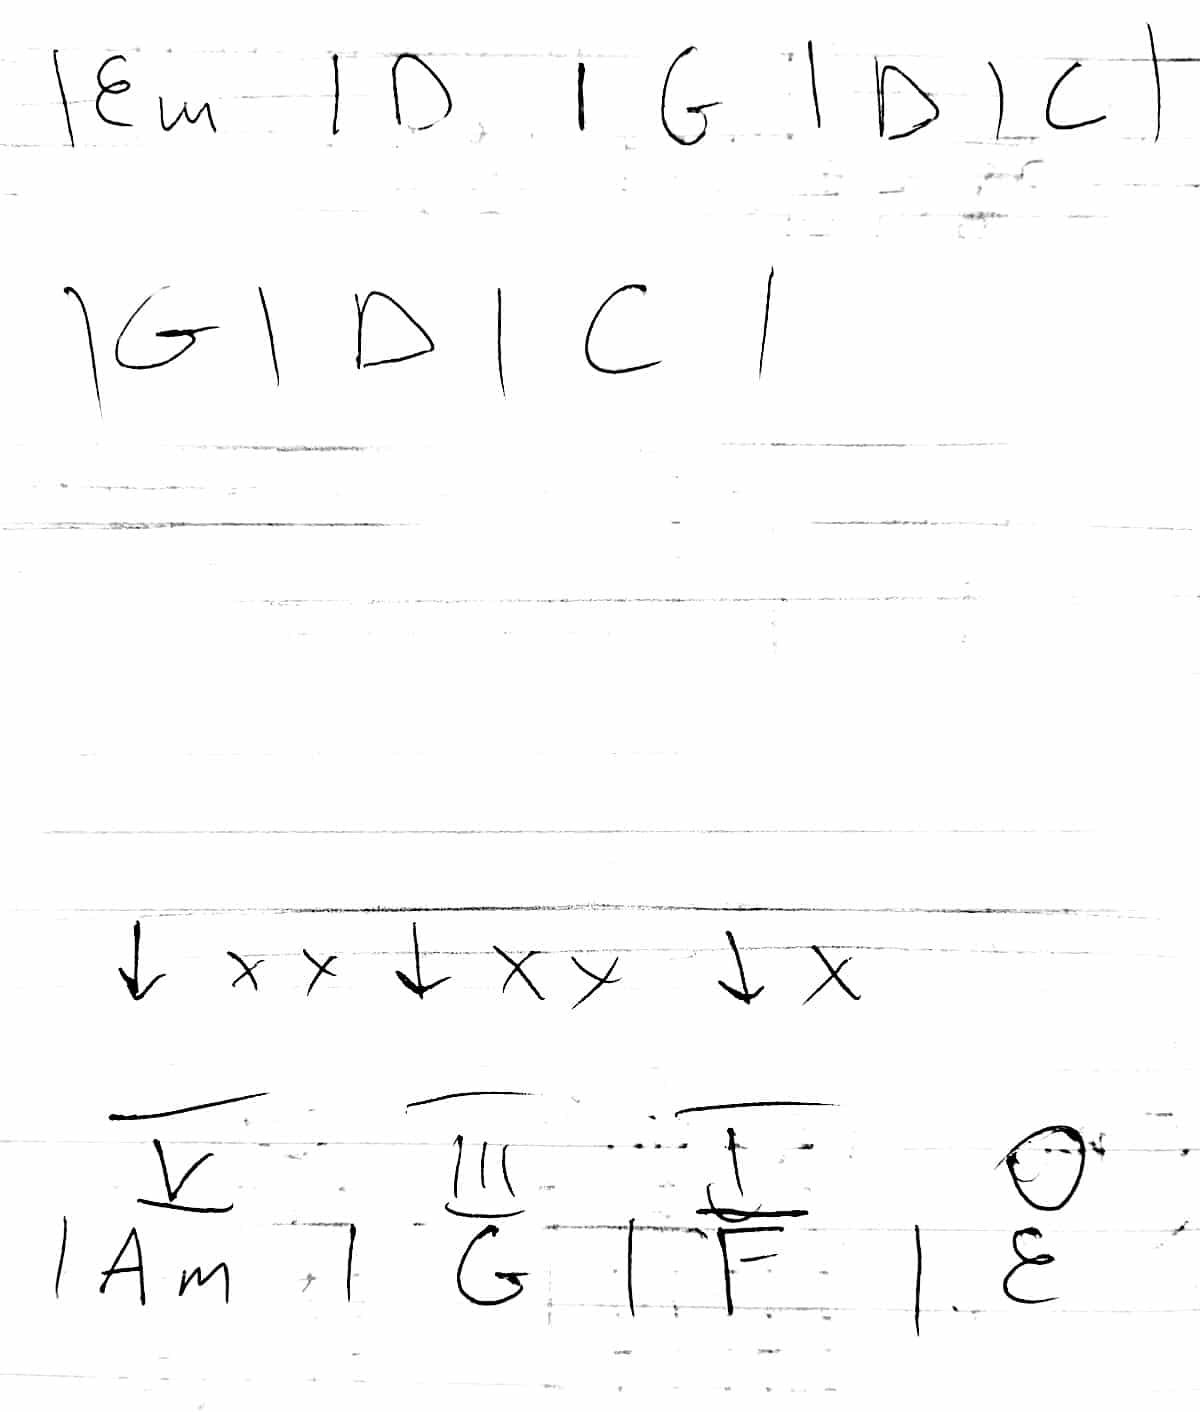 |Em | D | G | D | C |
|G | D | C |
↓ x x ↓ x x ↓ x
V III I O
| Am | G | F | E